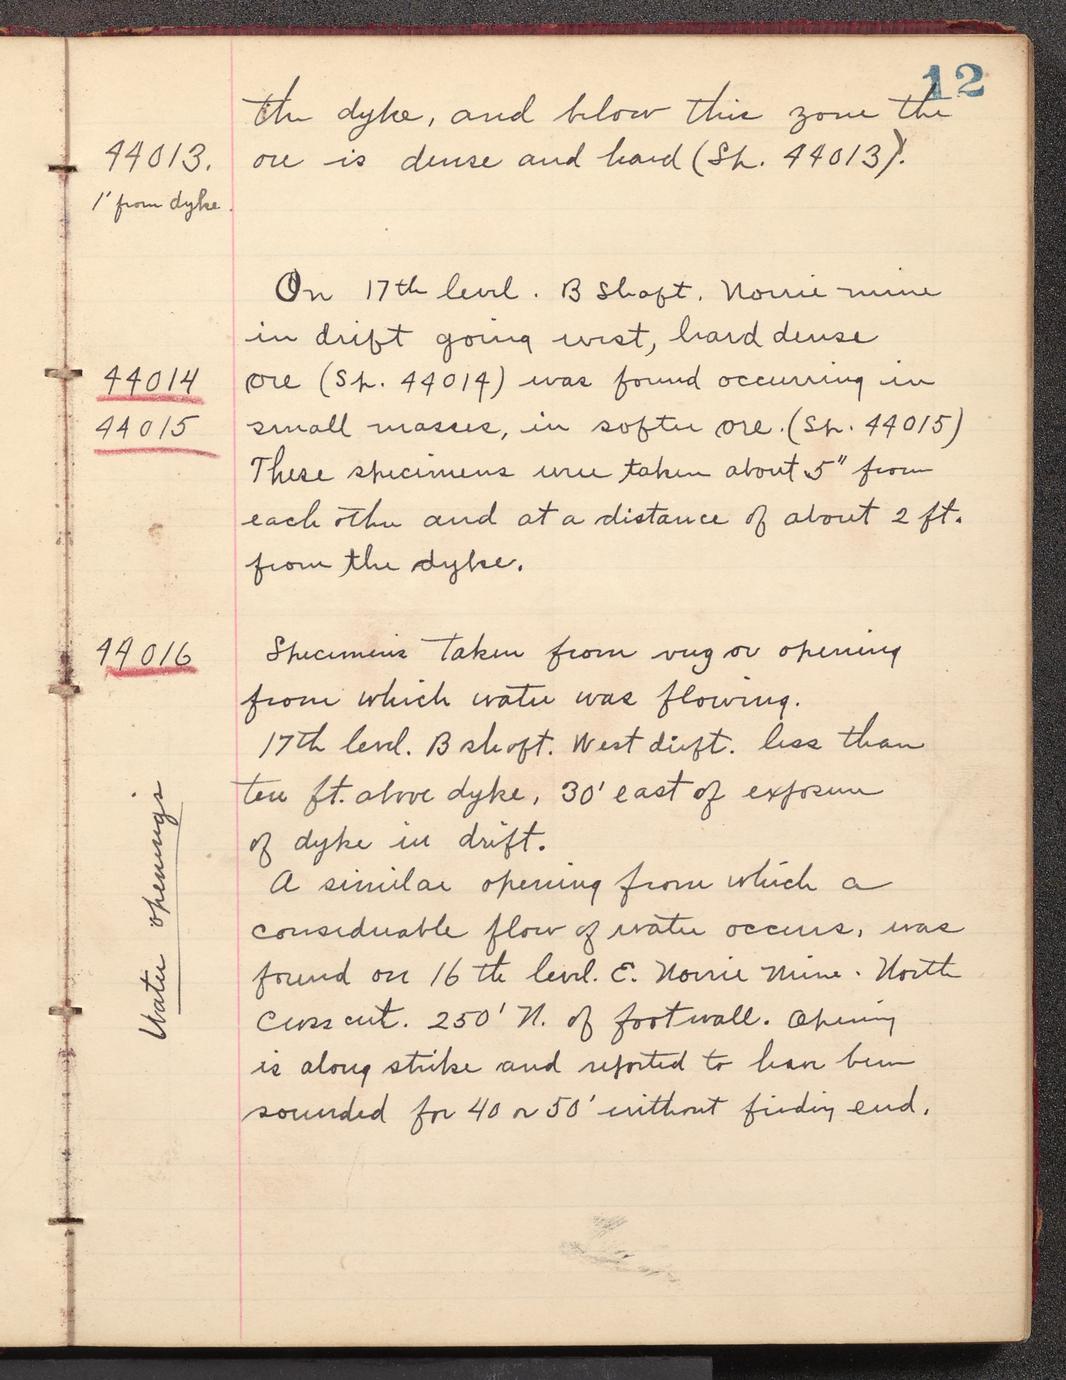 12
the dyke, and below this zone the
44013. ore is dense and hard (Sp. 44013).
1' from dyke.
On 17th level. B Shaft. Norrie mine
in drift going west, hard dense
44014 ore (Sp. 44014) was found occurring in
44015 small masses, in softer ore. (Sp. 44015)
These specimens were taken about 5" from
each other and at a distance of about 2 ft.
from the dyke.
44016 Specimens taken from vug or opening
from which water was flowing.
17th level. B shaft. West drift. less than
ten ft. above dyke, 30' east of exposure
of dyke in drift.
Water openings
A similar opening from which a
considerable flow of water occurs, was
found on 16th level. E. Norrie Mine. North
Crosscut. 250' N. of footwall. Opening
is along strike and reported to have been
sounded for 40 or 50' without finding end.